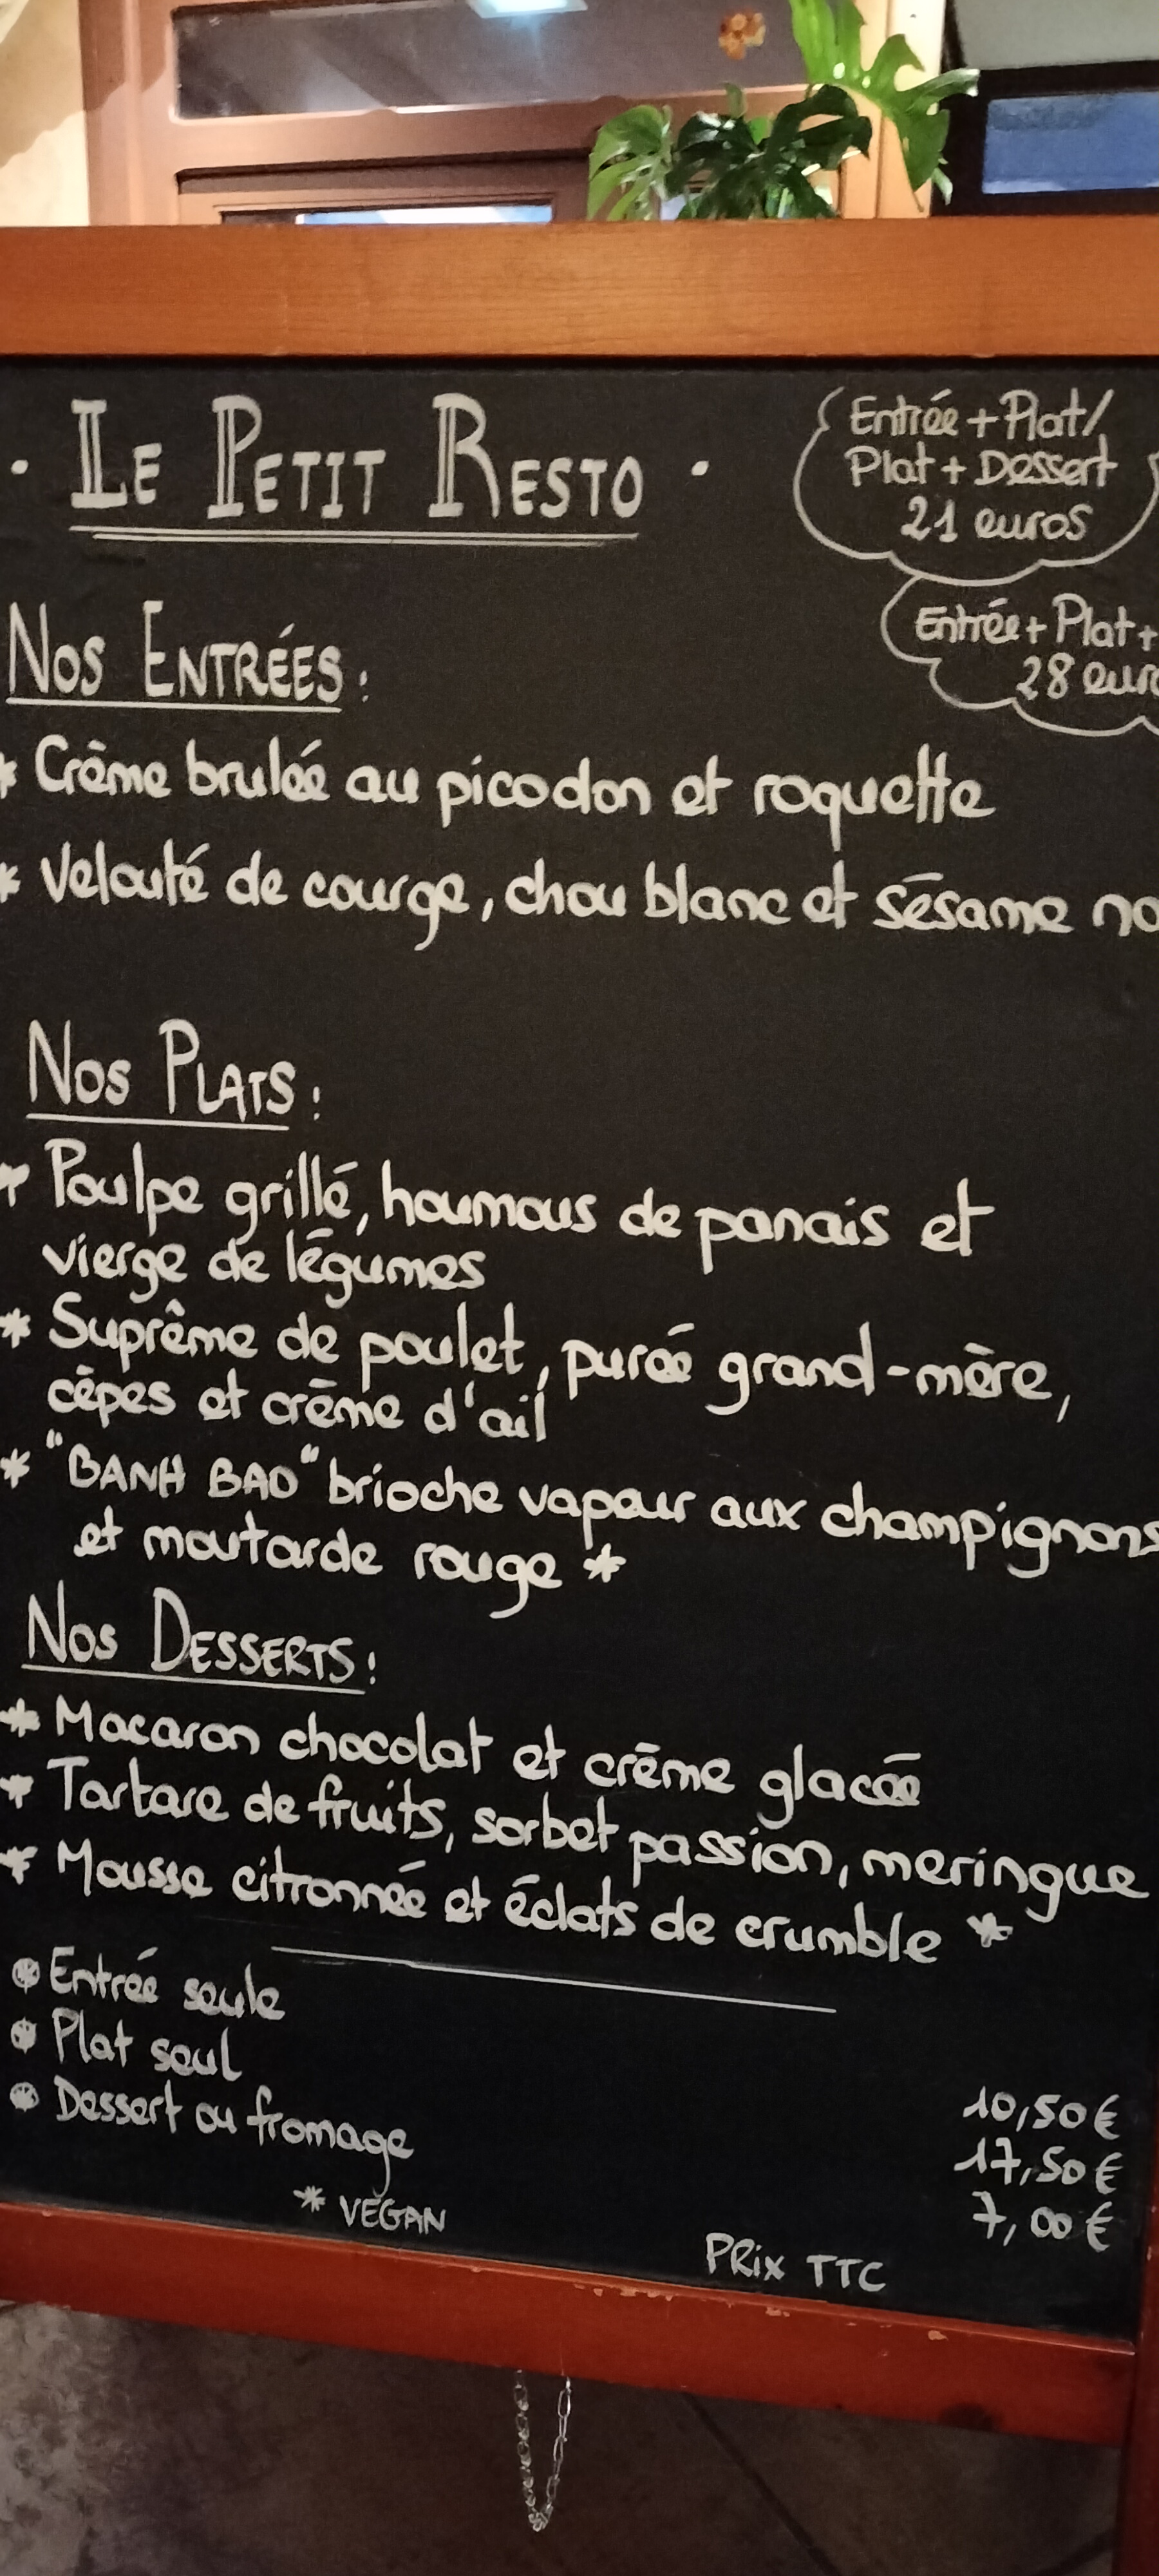 · LE PETIT RESTO ·
Entrée + Plat/
Plat + Dessert
21 euros
Entrée + Plat +
28 euro
NOS ENTRÉES :
* Crème brulée au picodon et roquette
* Velouté de courge, chou blanc et sésame no
NOS PLATS :
* Poulpe grillé, houmous de panais et
vierge de légumes
* Suprême de poulet, purée grand-mère,
cèpes et crème d'ail
* "BANH BAO" brioche vapeur aux champignons
et moutarde rouge *
NOS DESSERTS :
* Macaron chocolat et crème glacée
* Tartare de fruits, sorbet passion, meringue
* Mousse citronnée et éclats de crumble *
Entrée seule
Plat seul
Dessert ou fromage
10,50 €
17,50 €
7,00 €
* VEGAN
PRIX TTC